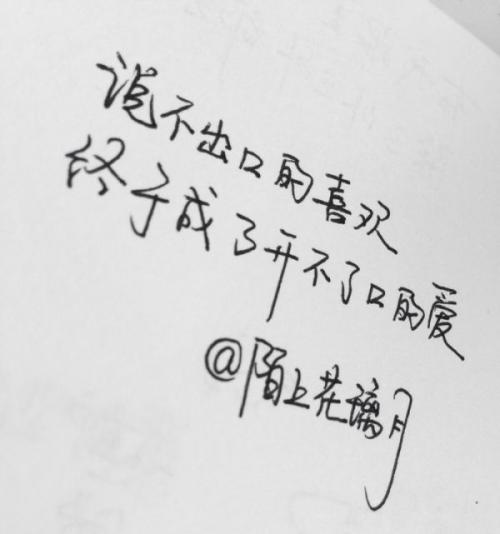 说不出口的喜欢
终于成了开不了口的爱
@陌上花璃月